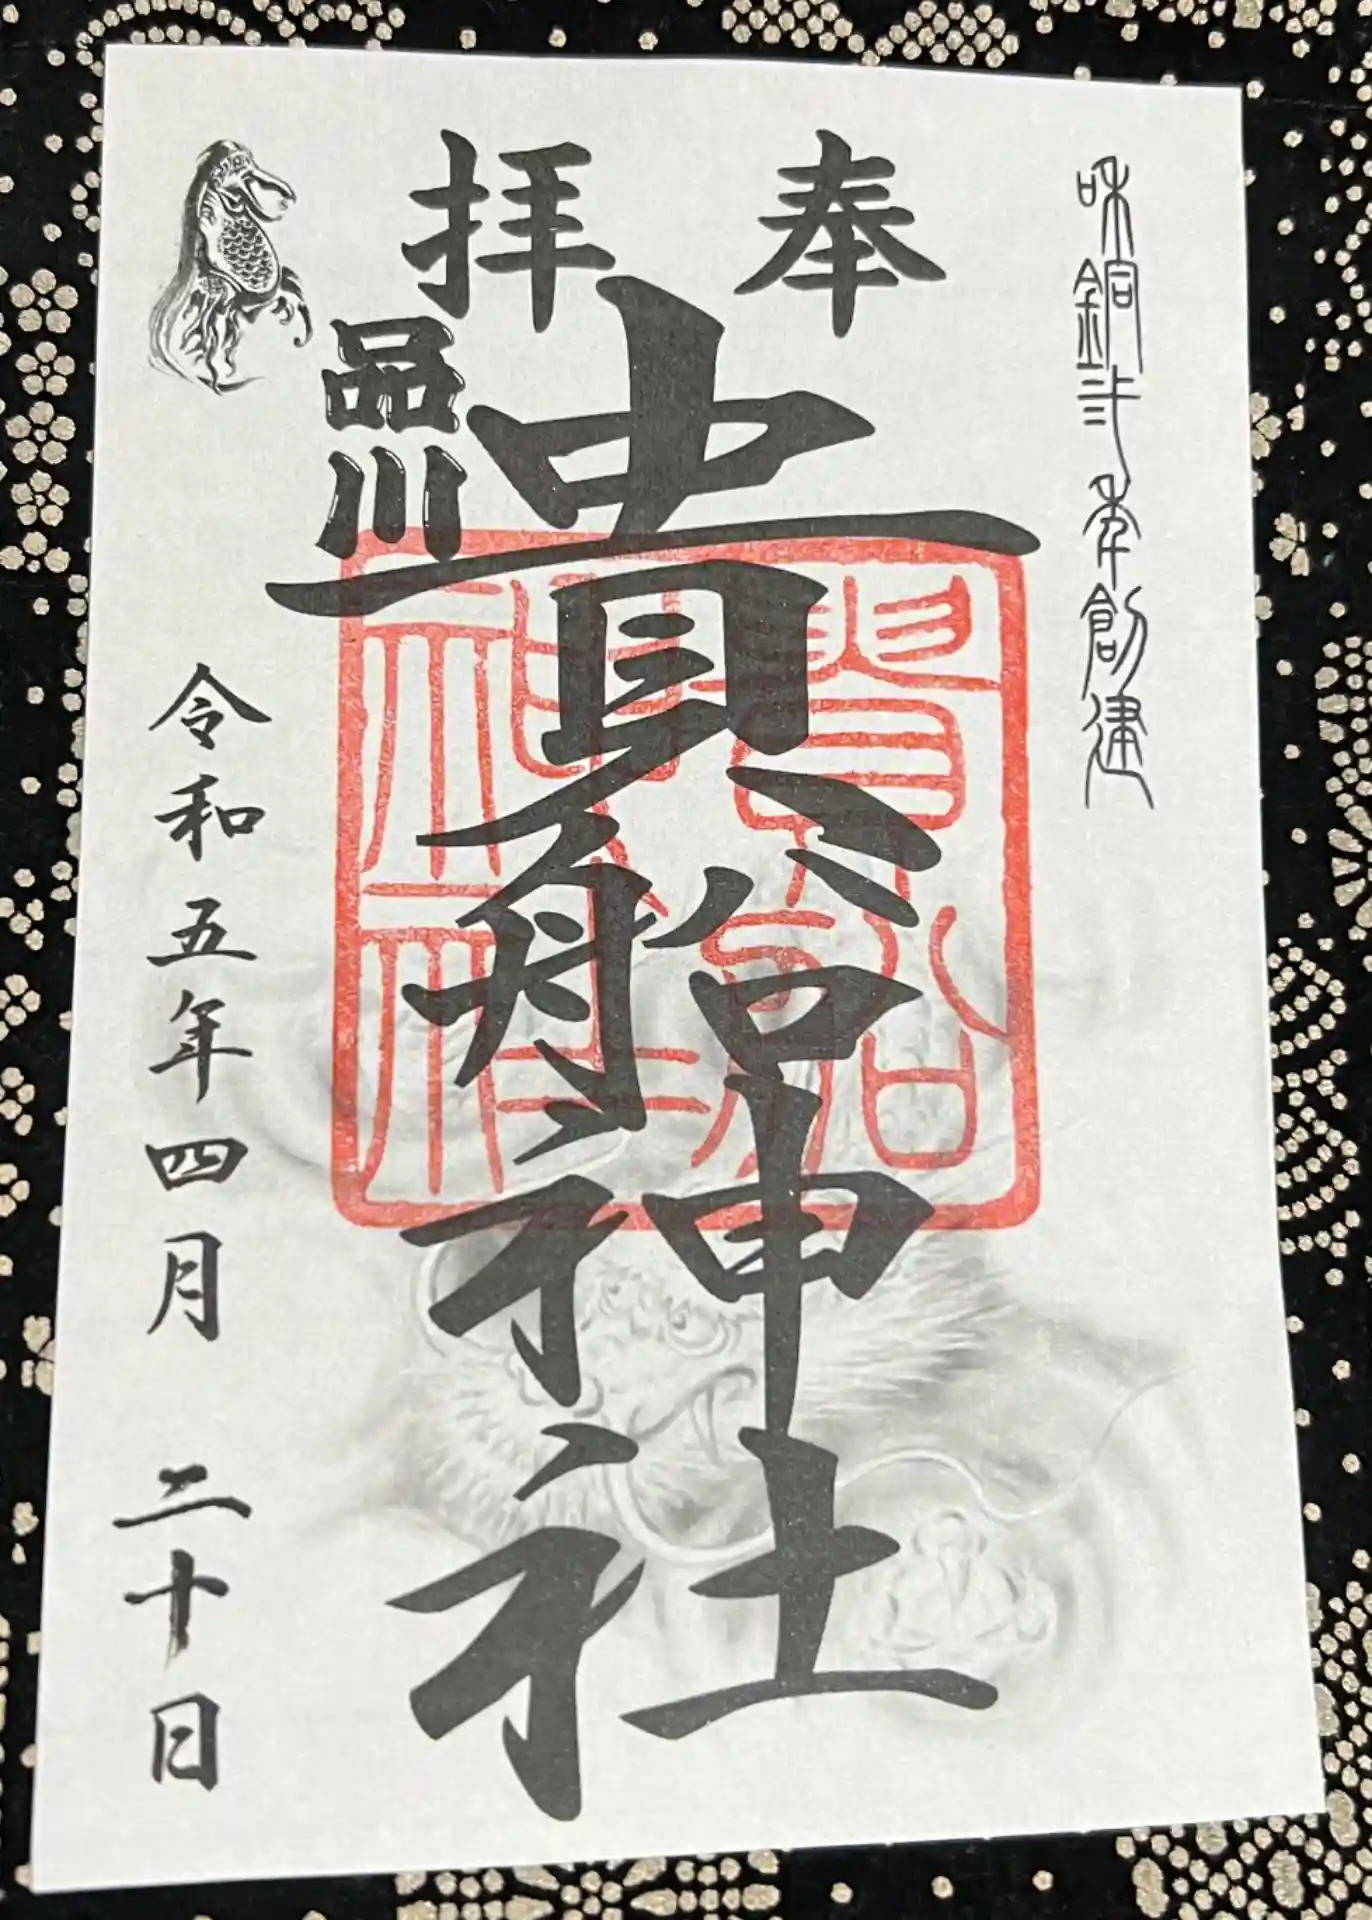 和銅弐年創建
奉拝
品川
貴船神社
貴船
神社
令和五年四月 二十日